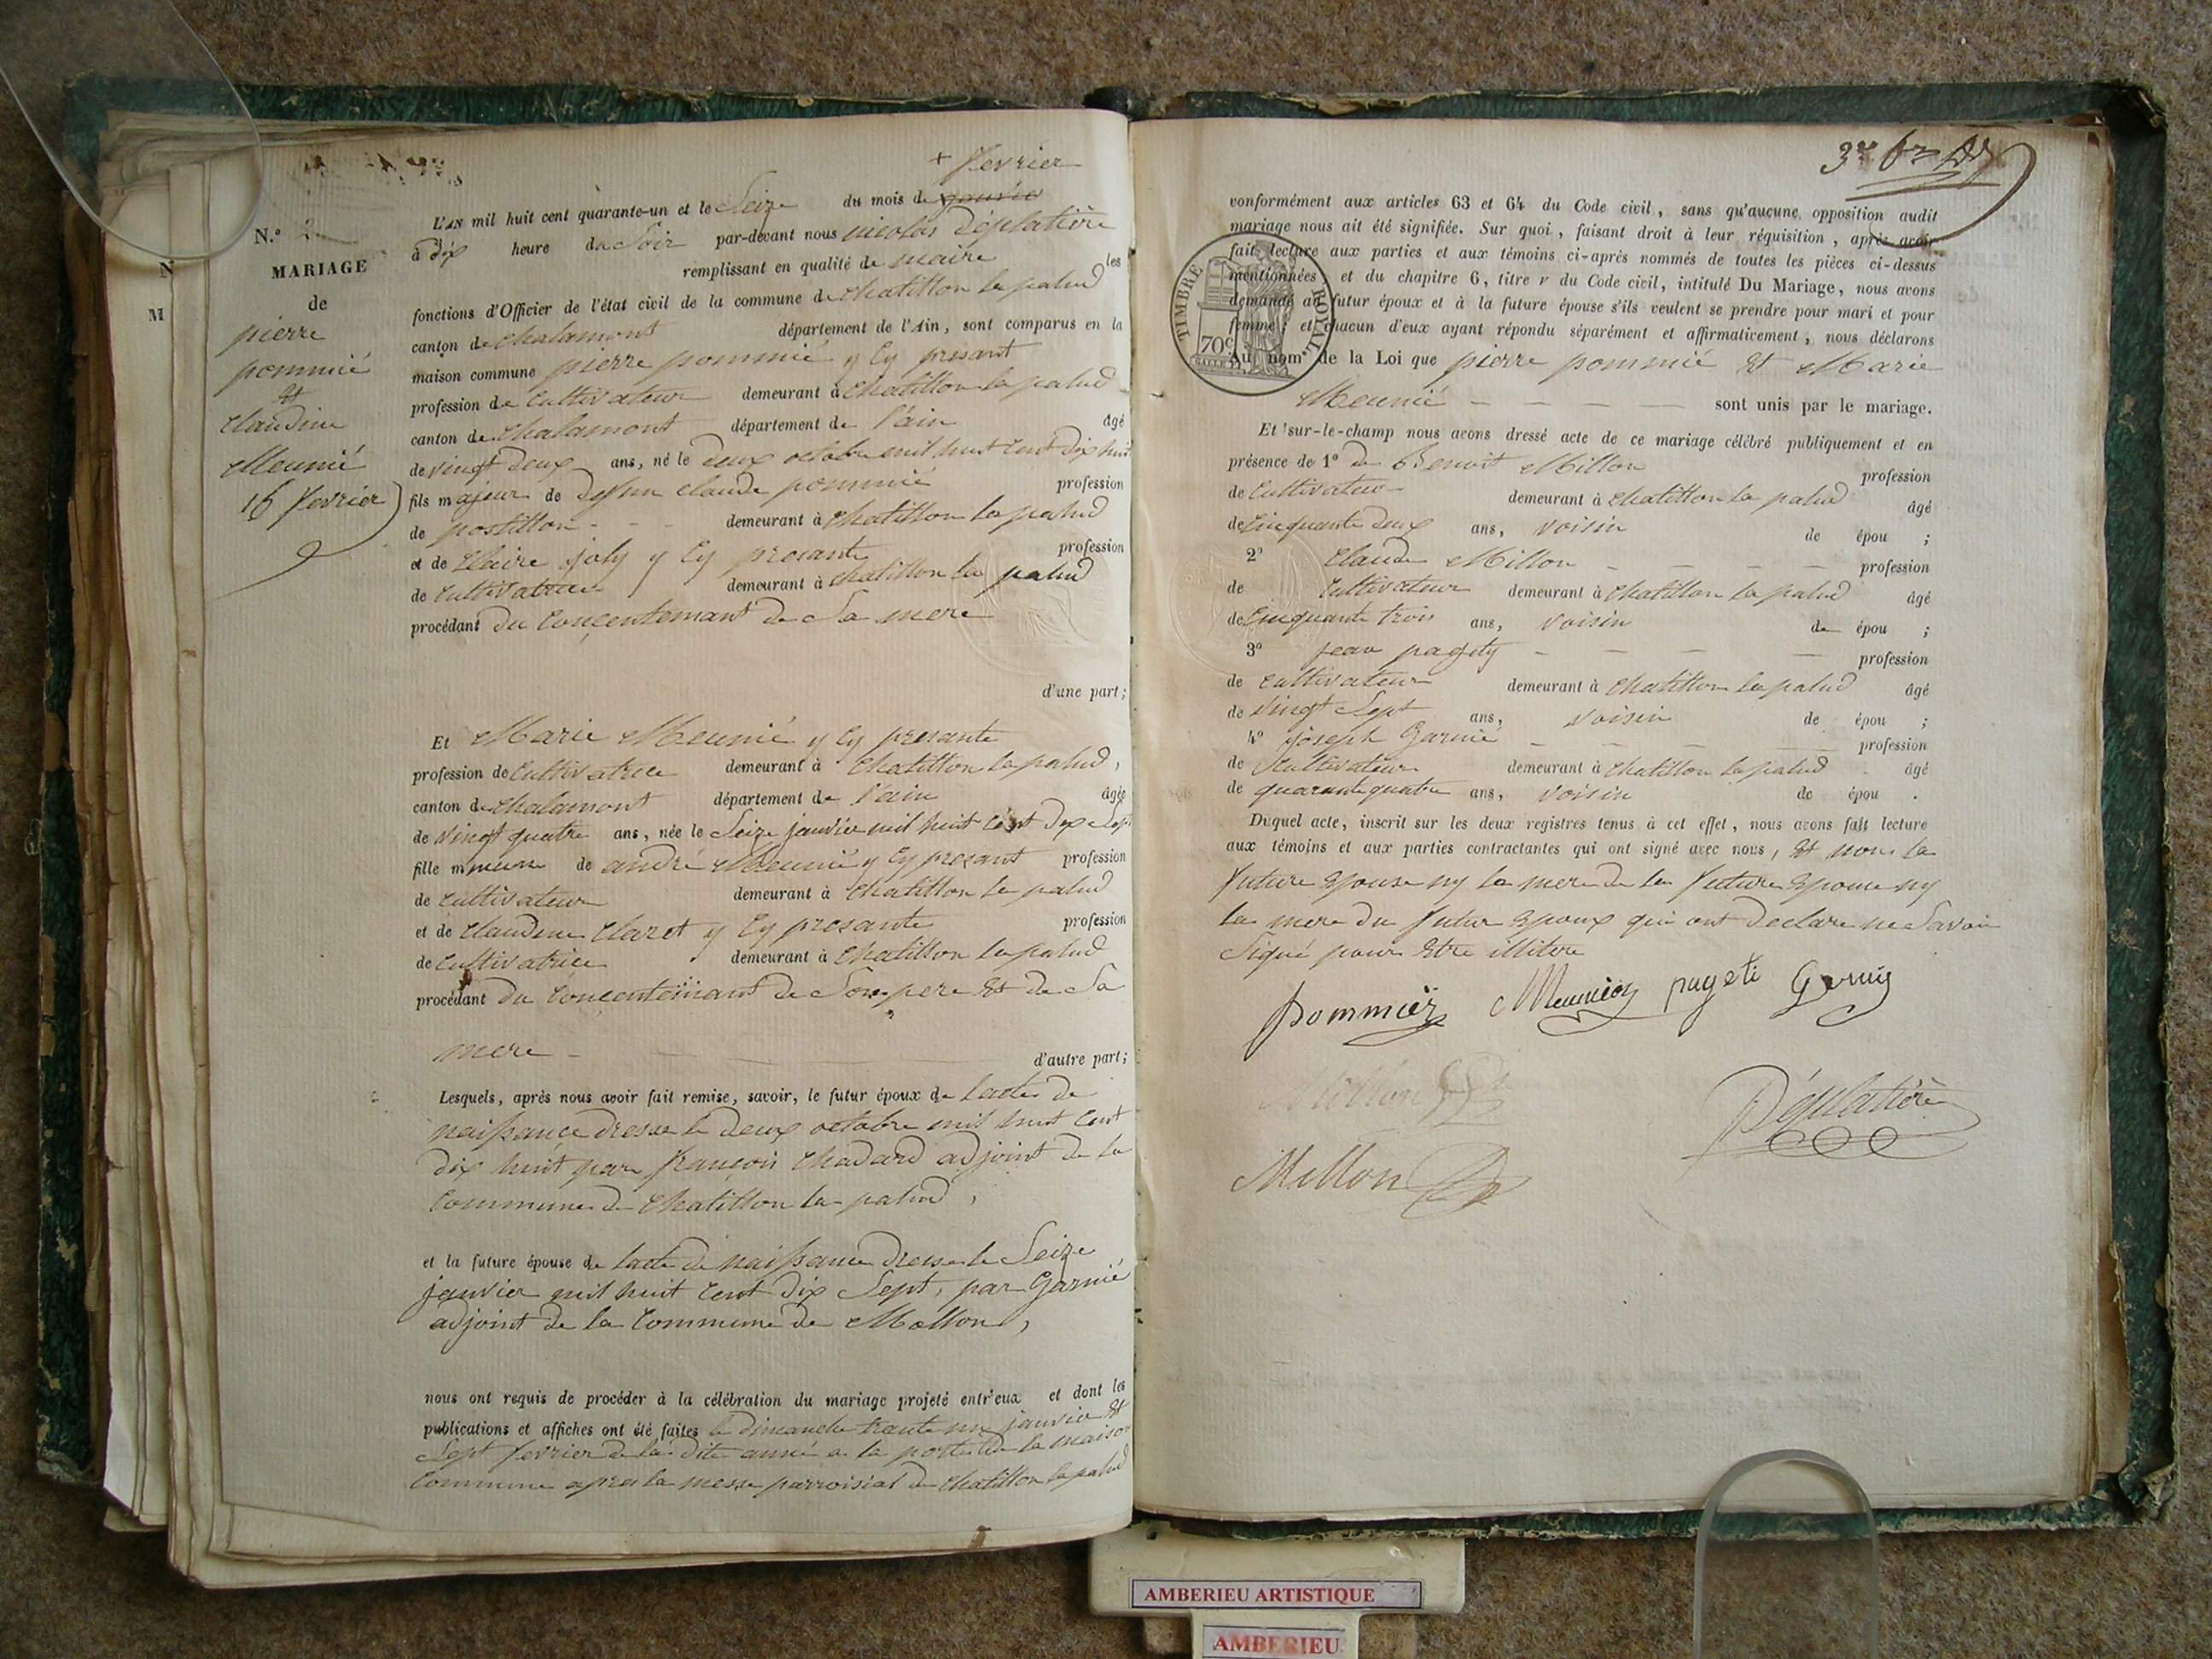 + fevrier
L'AN mil huit cent quarante-un et le Seize du mois de janvier
à dix heure du Soir par-devant nous nicolas Déplatière
remplissant en qualité de maire les
fonctions d'Officier de l'état civil de la commune de chatillon la palud
canton de chalamont département de l'Ain, sont comparus en la
maison commune pierre pommié y Cy presant
profession de Cultivateur demeurant à Chatillon la palud
canton de Chalamont département de l'ain âgé
de vingt deux ans, né le deux octobre mil huit Cent Dix huit
fils majeur de deffun claude pommié profession
de postillon - - - demeurant à Chatillon la palud
et de Claire joly y Cy presante profession
de Cultivatrice demeurant à chatillon la palud
procédant du Conçentemant de Sa mere
d'une part;
Et Marie Meunié y Cy presante
profession de Cultivatrice demeurant à Chatillon la palud,
canton de chalamont département de l'ain âgée
de vingt quatre ans, née le Seize janvier mil huit Cent Dix Sept
fille mineure de andré Meunié y Cy presant profession
de cultivateur demeurant à Chatillon la palud
et de Claudine Claret y Cy presante profession
de Cultivatrice demeurant à Chatillon la palud
procédant du Conçentemant de Son pere et de Sa
mere - d'autre part;
Lesquels, après nous avoir fait remise, savoir, le futur époux de lacte de
naissance dresse le deux octobre mil huit Cent
dix huit par françois Chadard adjoint de la
Commune de Chatillon la palud,
et la future épouse de lacte de naissance dresse le Seize
janvier mil huit Cent Dix Sept, par Garnié
adjoint de la Commune de Mollon,
nous ont requis de procéder à la célébration du mariage projeté entr'eux et dont les
publications et affiches ont été faites le dimanche trante un janvier et
Sept fevrier de la dite anné a la porte de la maison
Commune apres la messe parroisial de Chatillon la palud
N.º 2
MARIAGE
de
pierre
pommié
et
Claudine
Meunié
16 fevrier
N
M
conformément aux articles 63 et 64 du Code civil, sans qu'aucune opposition audit
mariage nous ait été signifiée. Sur quoi, faisant droit à leur réquisition, après avoir
fait lecture aux parties et aux témoins ci-après nommés de toutes les pièces ci-dessus
mentionnées, et du chapitre 6, titre v du Code civil, intitulé Du Mariage, nous avons
demandé au futur époux et à la future épouse s'ils veulent se prendre pour mari et pour
femme; et chacun d'eux ayant répondu séparément et affirmativement, nous déclarons
Au nom de la Loi que pierre pommié et Marie
Meunié - - - - sont unis par le mariage.
TIMBRE ROYAL
70c
Et sur-le-champ nous avons dressé acte de ce mariage célébré publiquement et en
présence de 1º de Benoit Millon profession
de Cultivateur demeurant à chatillon la palud âgé
de Cinquante deux ans, voisin de épou ;
2º Claude Millon - - - - profession
de Cultivateur demeurant à Chatillon la palud âgé
de Cinquante trois ans, voisin de épou ;
3º jean pagety - - - - profession
de Cultivateur demeurant à Chatillon la palud âgé
de vingt Sept ans, voisin de épou ;
4º joseph Garnié - - - - profession
de Cultivateur demeurant à Chatillon la palud âgé
de quarante quatre ans, voisin de épou .
Duquel acte, inscrit sur les deux registres tenus à cet effet, nous avons fait lecture
aux témoins et aux parties contractantes qui ont signé avec nous, et non la
future Epouse ny la mere de la future Epouse ny
la mere du futur Epoux qui ont declare ne Savoir
Signé pour Etre illitere
Pommier Meunier pageti Garnié
Millon
Déplatière
Millon
AMBERIEU ARTISTIQUE
AMBERIEU